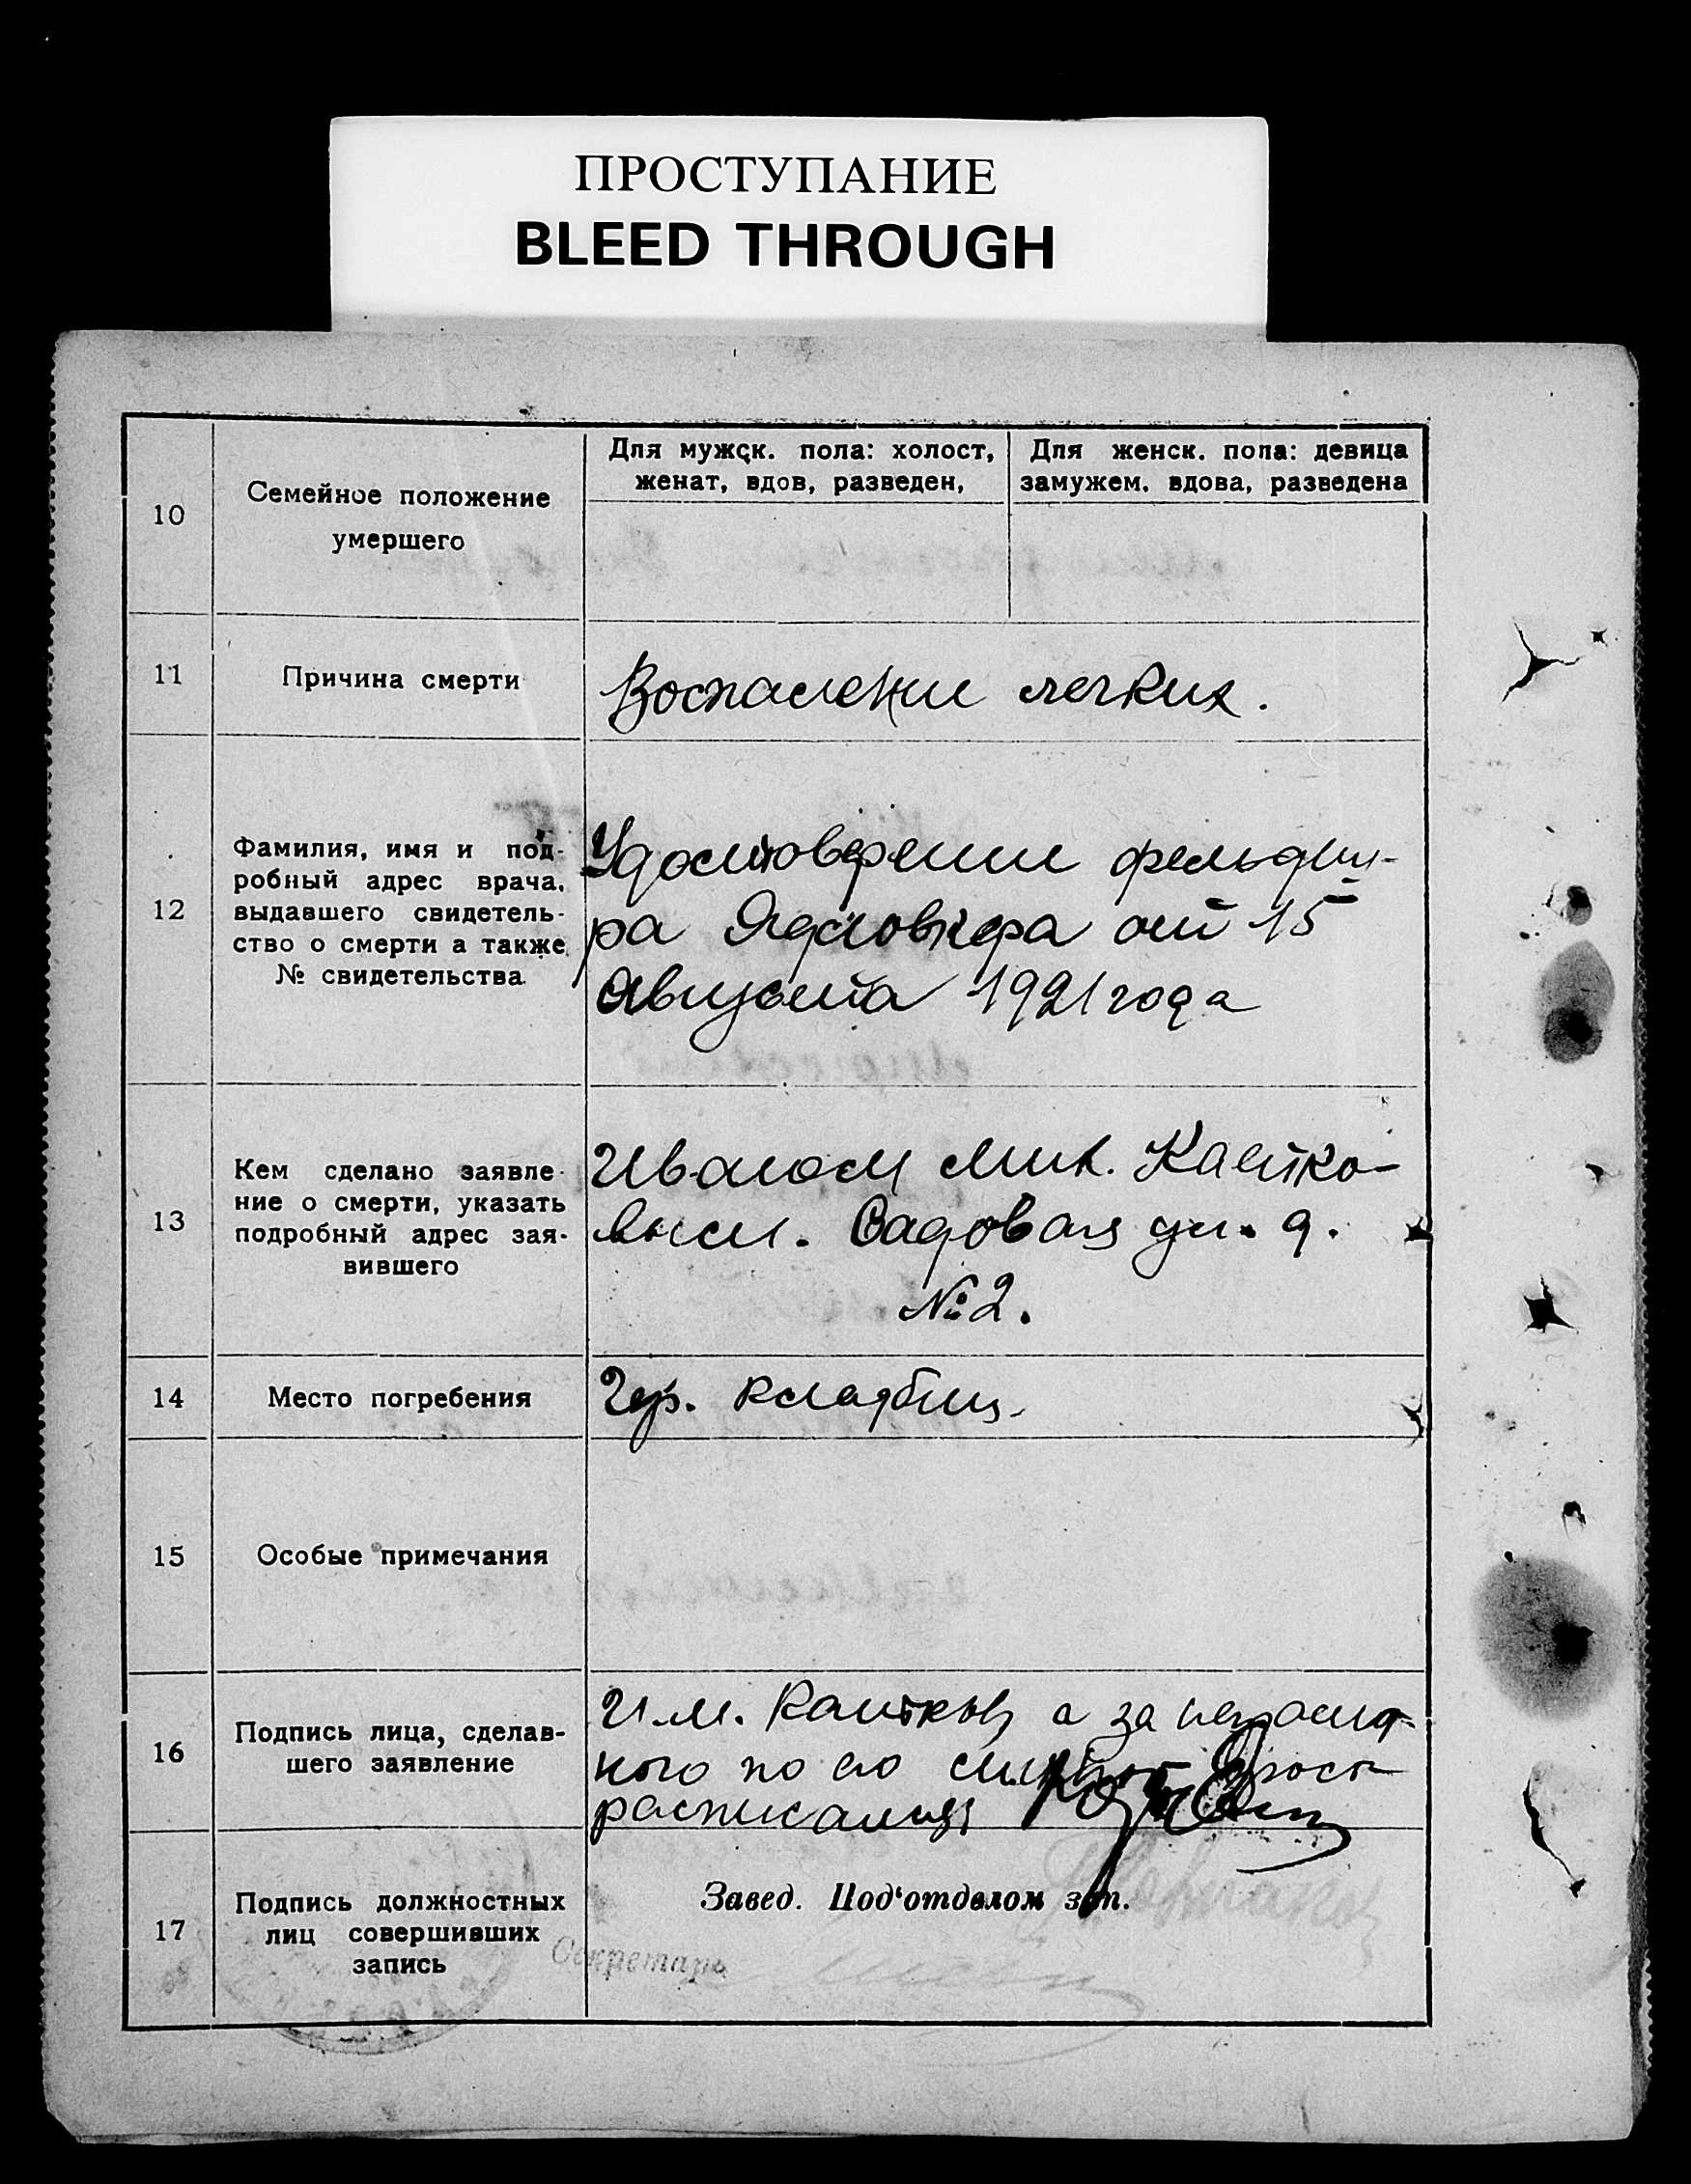 ПРОСТУПАНИЕ
BLEED THROUGH
10
Семейное положение
умершего
Для мужск. пола: холост,
женат, вдов, разведен,
Для женск. пола: девица
замужем, вдова, разведена
11
Причина смерти
Воспаление легких.
12
Фамилия, имя и под-
робный адрес врача,
выдавшего свидетель-
ство о смерти а также
№ свидетельства
Удостоверение фельдше-
ра от 15
Августа 1921 года
13
Кем сделано заявле-
ние о смерти, указать
подробный адрес зая-
вившего
Иваном Мих. Каитко-
вым. Садовая ул. д.
№ 2.
14
Место погребения
кладбищ.
15
Особые примечания
16
Подпись лица, сделав-
шего заявление
И. М. а за неграмот-
ного по его
расписался
17
Подпись должностных
лиц совершивших
запись
Завед. Под'отделом зап.
Секретарь